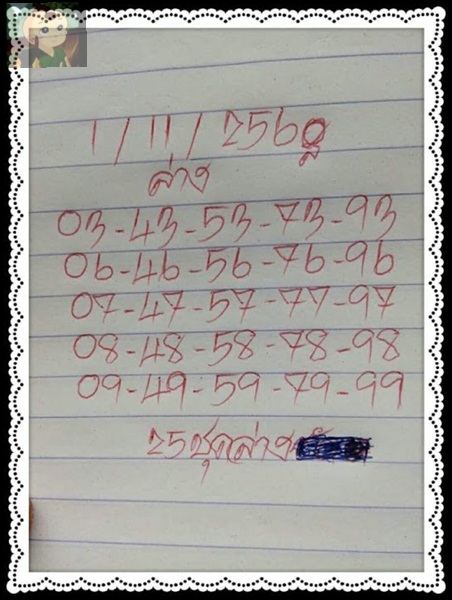 1/11/2560
ล่าง
03-43-53-73-93
06-46-56-76-96
07-47-57-77-97
08-48-58-78-98
09-49-59-79-99
25ชุดล่าง